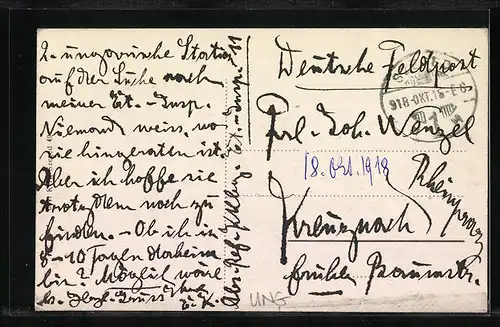 2. ungarische Station
auf der Suche nach
meiner Et.-Insp.
Niemand weiss, wo
sie hingeraten ist.
Aber ich hoffe sie
trotzdem noch zu
finden. - Ob ich in
8-10 Tagen daheim
bin? Möglich wäre
es. Herzl. Gruss
Deutsche Feldpost
Frl. Joh. Wenzel
18. Okt. 1918
Kreuznach
Rheinprov.
Baumstr.
UNG